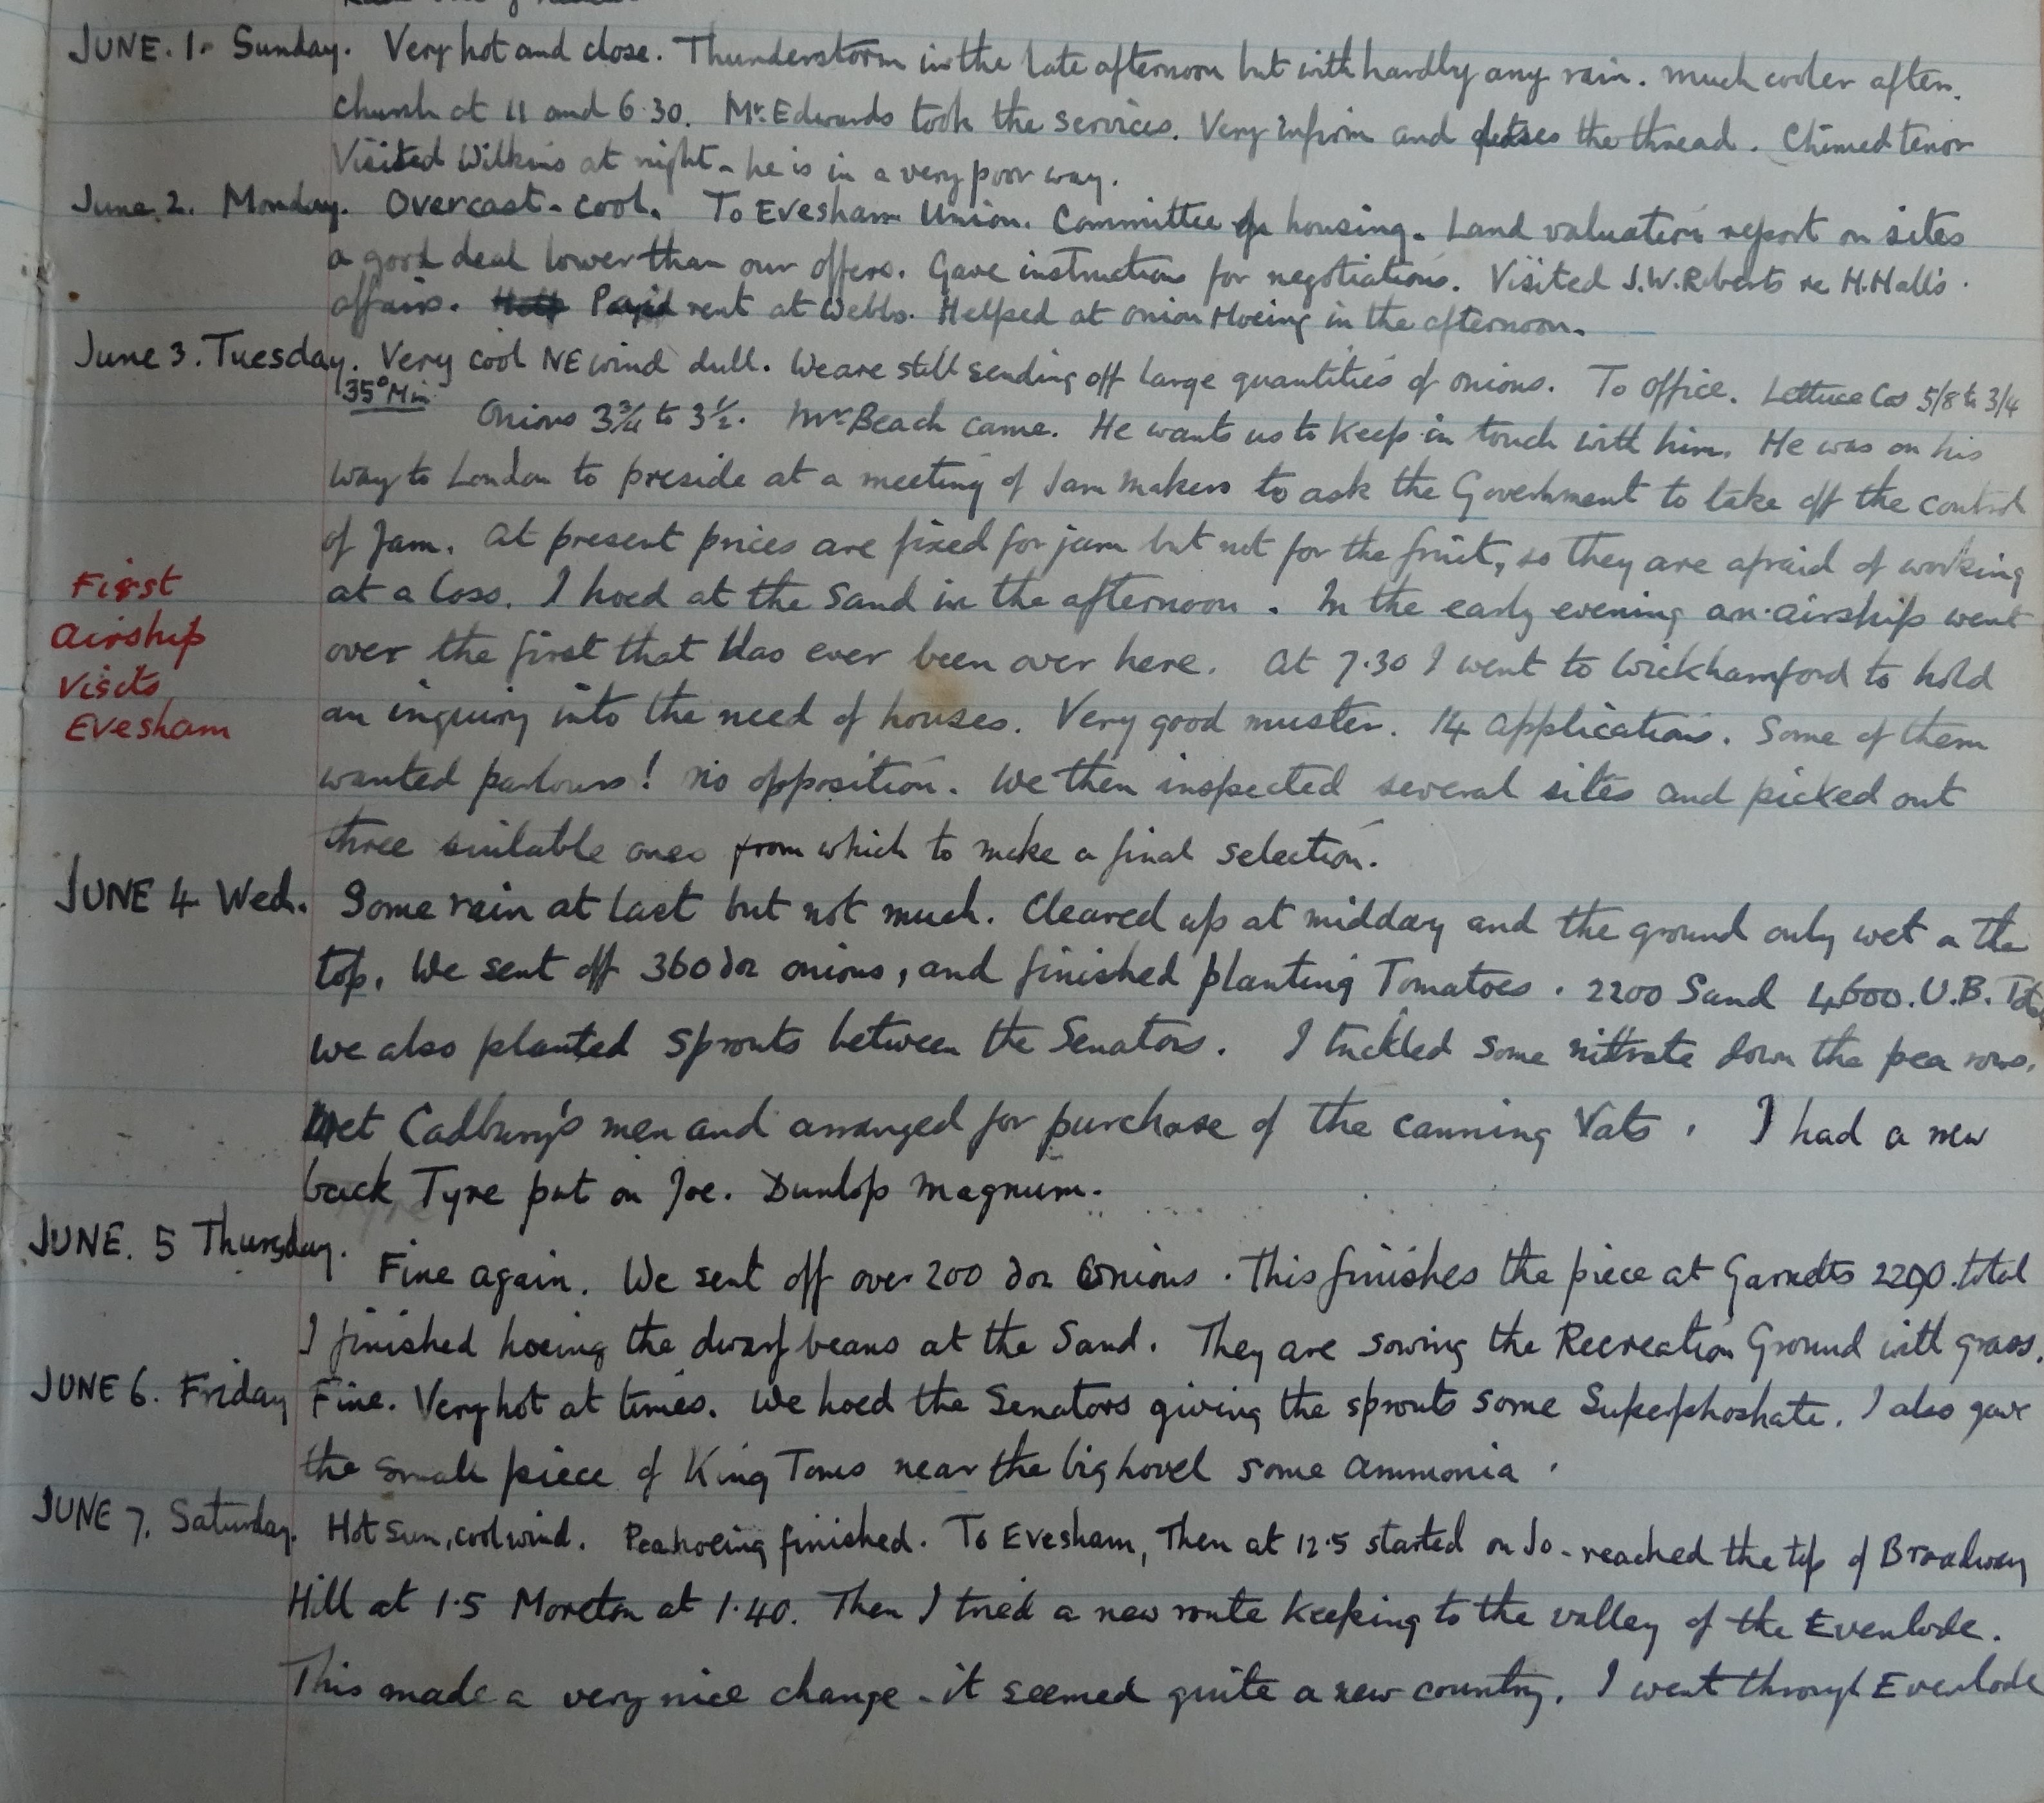 JUNE. 1. Sunday. Very hot and close. Thunderstorm in the late afternoon but with hardly any rain. Much cooler after.
Church at 11 and 6.30. Mr. Edwards took the services. Very infirm and loses the thread. Chimed tenor
Visited Wilkins at night - he is in a very poor way.
June. 2. Monday. Overcast - cool. To Evesham Union. Committee for housing. Land valuation report on sites
a good deal lower than our offers. Gave instructions for negotiations. Visited J.W. Roberts re H. Hall's
affairs. Paid rent at Webbs. Helped at onion Hoeing in the afternoon.
June 3. Tuesday. Very cool NE wind dull. We are still sending off large quantities of onions. To office. Lettuce Cos 5/8 to 3/4
35° Min Onions 3¾ to 3½. Mr Beach came. He wants us to keep in touch with him. He was on his
way to London to preside at a meeting of Jam makers to ask the Government to take off the control
of Jam. At present prices are fixed for jam but not for the fruit, so they are afraid of working
at a loss. I hoed at the Sand in the afternoon. In the early evening an airship went
over the first that has ever been over here. At 7.30 I went to Wickhamford to hold
an inquiry into the need of houses. Very good muster. 14 applications. Some of them
wanted parlours! No opposition. We then inspected several sites and picked out
three suitable ones from which to make a final selection.
First
Airship
Visits
Evesham
JUNE 4 Wed. Some rain at last but not much. Cleared up at midday and the ground only wet on the
top. We sent off 360 doz onions, and finished planting Tomatoes. 2200 Sand 4600. U.B.
We also planted sprouts between the Senators. I trickled some nitrate down the pea rows.
Met Cadbury's men and arranged for purchase of the canning Vats. I had a new
back Tyre put on Joe. Dunlop Magnum.
JUNE. 5 Thursday. Fine again. We sent off over 200 doz Onions. This finishes the piece at Garnetts 2290 total
I finished hoeing the dwarf beans at the Sand. They are sowing the Recreation Ground with grass.
JUNE 6. Friday Fine. Very hot at times. We hoed the Senators giving the sprouts some Superphoshate. I also gave
the small piece of King Toms near the big hovel some ammonia.
JUNE 7. Saturday. Hot sun, cool wind. Pea hoeing finished. To Evesham, Then at 12.5 started on Jo - reached the top of Broadway
Hill at 1.5 Moreton at 1.40. Then I tried a new route keeping to the valley of the Evenlode.
This made a very nice change - it seemed quite a new country. I went through Evenlode